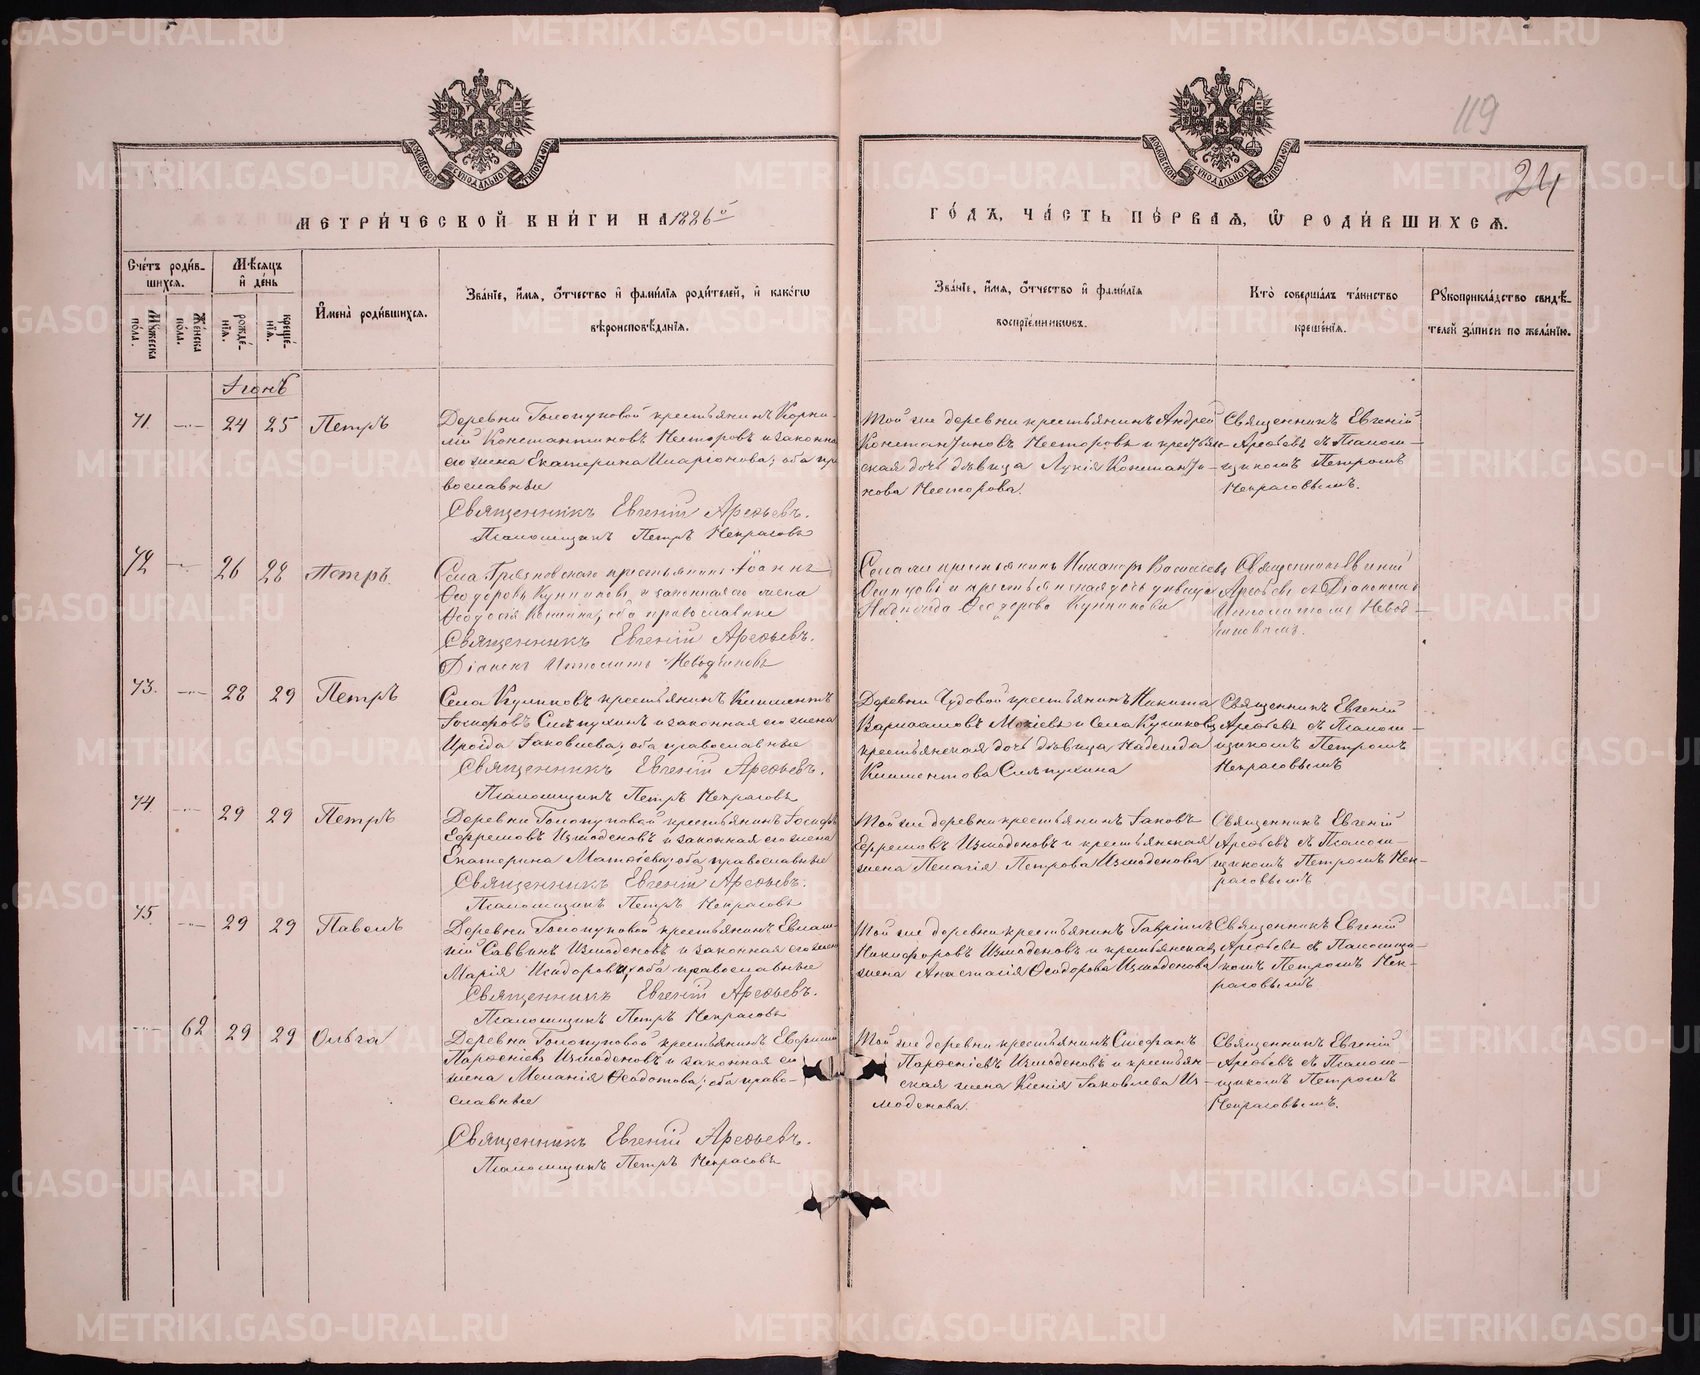 119
24
МЕТРИ́ЧЕСКОЙ КНИ́ГИ НА 1886й
ГО́ДЪ, ЧА́СТЬ ПЕ́РВАЯ, Ѡ РОДИ́ВШИХСѦ.
Сче́тъ роди́в-
шихся.
Мѣ́сяцъ
и҆ де́нь
Му́жеска
по́ла.
Же́нска
по́ла.
рожде́-
нїя.
креще́-
нїя.
И҆мена̀ роди́вшихся.
Зва́нїе, и҆́мя, ѻ҆́тчество и҆ фами́лїя роди́телей, и҆ како́гѡ
вѣроисповѣ́данїя.
Зва́нїе, и҆́мя, ѻ҆́тчество и҆ фами́лїя
воспрїе́мникѡвъ.
Кто̀ соверша́лъ та́инство
креще́нїя.
Рꙋкоприкла́дство свидѣ́-
телей за́писи по жела́нїю.
Іюнь
71. 24 25 Петръ
Деревни Голопуповой крестьянинъ Корни-
лій Константиновъ Несторовъ и законная
его жена Екатерина Иларіонова, оба пра
вославные
Священникъ Евгеній Арефьевъ.
Псаломщикъ Петръ Некрасовъ
Той же деревни крестьянинъ Андрей
Константиновъ Несторовъ и крестьян-
ская дочь дѣвица Лукія Константи-
нова Несторова.
Священникъ Евгеній
Арефьевъ съ Псалом-
щикомъ Петромъ
Некрасовымъ.
72 26 28 Петръ.
Села Грязновскаго крестьянинъ Іоаннъ
Ѳеодоровъ Кунниковъ и законная его жена
Ѳеодосія, оба православные
Священникъ Евгеній Арефьевъ.
Діаконъ Ипполитъ
Села же крестьянинъ Никаноръ Васильевъ
и крестьянская дочь дѣвица
Надежда Ѳеодорова Кунникова
Священникъ Евгеній
Арефьевъ съ Діакономъ
Ипполитомъ
73. 28 29 Петръ
Села Куликовъ крестьянинъ Климентъ
Іосифовъ Слѣпухинъ и законная его жена
Іроида Іаковлева, оба православные
Священникъ Евгеній Арефьевъ.
Псаломщикъ Петръ Некрасовъ
Деревни Чудовой крестьянинъ Никита
Варлаамовъ и Села Куликовъ
крестьянская дочь дѣвица Надежда
Климентова Слѣпухина
Священникъ Евгеній
Арефьевъ съ Псалом-
щикомъ Петромъ
Некрасовымъ
74 29 29 Петръ
Деревни Голопуповой крестьянинъ Іосифъ
Ефремовъ Измоденовъ и законная его жена
Екатерина Матѳіева, оба православные
Священникъ Евгеній Арефьевъ.
Псаломщикъ Петръ Некрасовъ
Той же деревни крестьянинъ Іаковъ
Ефремовъ Измоденовъ и крестьянская
жена Пелагія Петрова Измоденова
Священникъ Евгеній
Арефьевъ съ Псалом-
щикомъ Петромъ Нек-
расовымъ
75 29 29 Павелъ
Деревни Голопуповой крестьянинъ Евлам-
пій Саввинъ Измоденовъ и законная его жена
Марія Исидорова, оба православные
Священникъ Евгеній Арефьевъ.
Псаломщикъ Петръ Некрасовъ
Той же деревни крестьянинъ Гавріилъ
Никифоровъ Измоденовъ и крестьянская
жена Анастасія Ѳеодорова Измоденова
Священникъ Евгеній
Арефьевъ съ Псаломщи-
комъ Петромъ Нек-
расовымъ
62 29 29 Ольга
Деревни Голопуповой крестьянинъ
Парѳеніевъ Измоденовъ и законная его
жена Меланія Ѳеодотова, оба право-
славные
Священникъ Евгеній Арефьевъ.
Псаломщикъ Петръ Некрасовъ
Той же деревни крестьянинъ Стефанъ
Парѳеніевъ Измоденовъ и крестьян
ская жена Ксенія Іаковлева Из-
моденова.
Священникъ Евгеній
Арефьевъ съ Псалом-
щикомъ Петромъ
Некрасовымъ.
METRIKI.GASO-URAL.RU